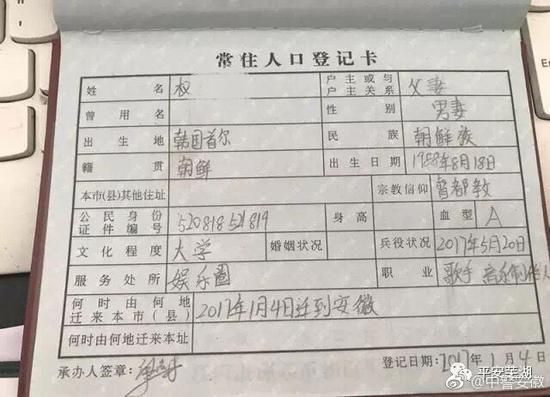 常住人口登记卡
姓 名 权 户主或与户主关系 父妻
曾用名 性别 男妻
出生地 韩国首尔 民族 朝鲜族
籍贯 朝鲜 出生日期 1988年8月18日
本市(县)其他住址 宗教信仰 首都教
公民身份证件编号 520818521819 身高 血型 A
文化程度 大学 婚姻状况 兵役状况 2017年5月20日
服务处所 娱乐圈 职业 歌手 音乐制作人
何时由何地迁来本市(县) 2017年1月4日迁到安徽
何时由何地迁来本址
承办人签章: 登记日期:2017年1月4日
@平安芜湖
@中警安徽